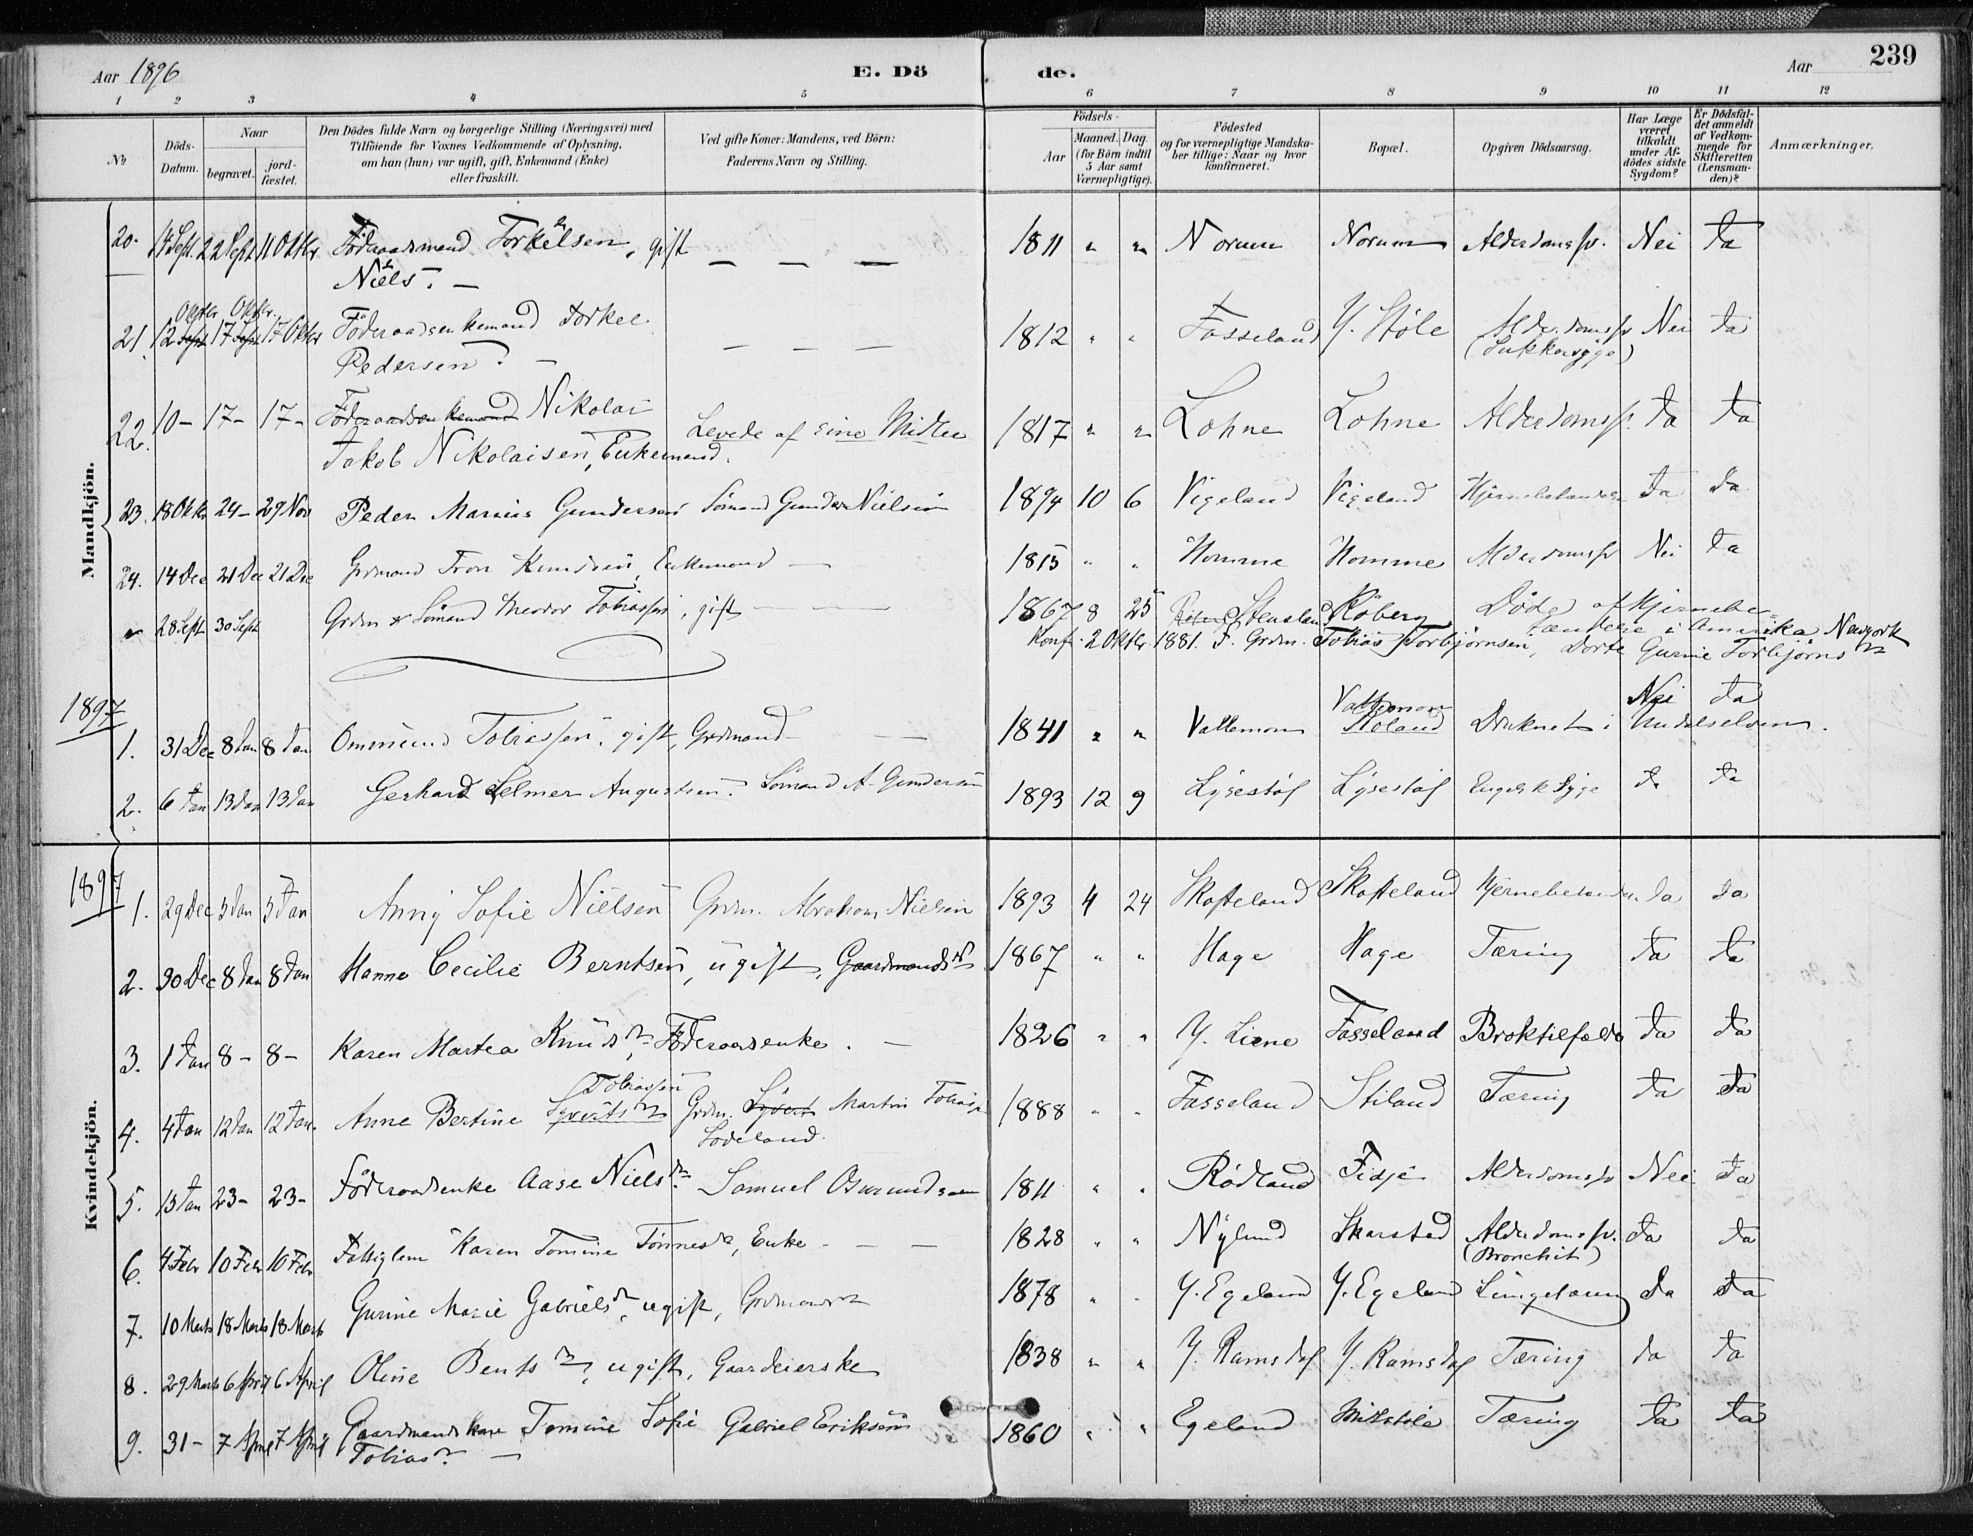 239
Aar 1896 E. Dö de. Aar
1 2 3 4 5 6 7 8 9 10 11 12
No
Döds-Datum.
Naar
begravet.
jord-fæstet.
Den Dödes fulde Navn og borgerlige Stilling (Næringsvei) med
Tilföiende for Voxnes Vedkommende af Oplysning,
om han (hun) var ugift, gift, Enkemand (Enke)
eller fraskilt.
Ved gifte Koner: Mandens, ved Börn:
Faderens Navn og Stilling.
Födsels-
Aar
Maaned. Dag.
(for Börn indtil
5 Aar samt
Værnepligtige).
Födested
og for værnepligtige Mandska-
ber tillige: Naar og hvor
konfirmeret.
Bopæl.
Opgiven Dödsaarsag.
Har Læge
været
tilkaldt
under Af-
dödes sidste
Sygdom?
Er Dödsfal-
det anmeldt
af Vedkom-
mende for
Skifteretten
(Lensman-
den)?
Anmærkninger.
Mandkjön.
20. 14 Sept. 22 Sept 11 Oktbr Föderaadsmand Torkelsen, gift — — — 1811 " " Norum Norum Alderdomssv. Nei Ja
Niels. —
Oktbr. Oktbr.
21. 12 Sept 17 Sept 17 Oktbr Föderaadsenkemand Torkel — — — 1812 " " Fasseland Y. Støle Alderdomssv Nei Ja
Pedersen. — (Sukkersyge)
22. 10 — 17 — 17 — Föderaadsenkemand Nikolai Levede af sine Midler 1817 " " Lohne Lohne Alderdomssv. Ja Ja
Jakob Nikolaisen, Enkemand.
23. 18 Oktbr 24 — 29 Nov Peder Marius Gundersen Sömand Gunder Nielsen 1894 10 6 Vigeland Vigeland Ja Ja
24. 14 Dec 21 Dec 21 Dec Grdmand Tron Knudsen, Enkemand — 1815 " " Homme Homme Alderdomssv Nei Ja
" 28 Sept 30 Sept Grdm & Sömand Theodor Tobiassen, gift — — — 1867 8 25 Stensland Röberg Döde af Hjernebe-
tændelse i Amerika, Newyork
Konf. 2 Oktbr. 1881. F. Grdm. Tobias Torbjörnsen, Dorte Gurine Torbjörnsdr
1897
1. 31 Dec 8 Jan 8 Jan Ommund Tobiassen, gift, Grdmand — — 1841 " " Vallemon Vallemon Nei Ja
Roland Druknet i Undalselven.
2. 6 Jan 13 Jan 13 Jan Gerhard Selmer Augustsen. Sömand A. Gundersen 1893 12 9 Lysestöl Lysestöl Engelsk Syge Ja Ja
1897
Kvindekjön.
1. 29 Dec 3 Jan 3 Jan Anny Sofie Nielsen Grdm. Abraham Nielsen 1893 4 24 Skofteland Skofteland Ja Ja
2. 30 Dec 8 Jan 8 Jan Hanne Cecilie Berntsen, ugift, Gaardmandsdr 1867 " " Hage Hage Tæring Ja Ja
3. 1 Jan 8 — 8 — Karen Martea Knudsdr, Föderaadsenke. — 1826 " " Y. Liene Fasseland Broktilfælde Ja Ja
Tobiassen
4. 4 Jan 12 Jan 12 Jan. Anne Bertine Syvertsdr Grdm. Syvert Martin Tobias 1888 " " Fasseland Stiland Tæring Ja Ja
Lodeland.
5. 13 Jan 23 — 23 — Föderaadsenke Aase Nielsdr. Samuel Osmundsen 1811 " " Rödland Fidje Alderdomssv Nei Ja
6. 4 Febr 10 Febr 10 Febr Fattiglem Karen Tomine Tönnesdr, Enke — — — 1828 " " Nylund Skarstad Alderdomssv. Ja Ja
(Bronchit)
7. 10 Marts 18 Marts 18 Marts Gurine Marie Gabrielsdr, ugift, Grdmandsdr 1878 " " Y. Egeland Y. Egeland Ja Ja
8. 29 Marts 6 April 6 April Oline Bentsdr, ugift, Gaardeierske 1838 " " Y. Ramsdal Y. Ramsdal Tæring Ja Ja
9. 31 — 7 April 7 April Gaardmandskone Tomine Sofie Gabriel Eriksen 1860 " " Egeland Midtstöle Tæring Ja Ja
Tobiasdr. —